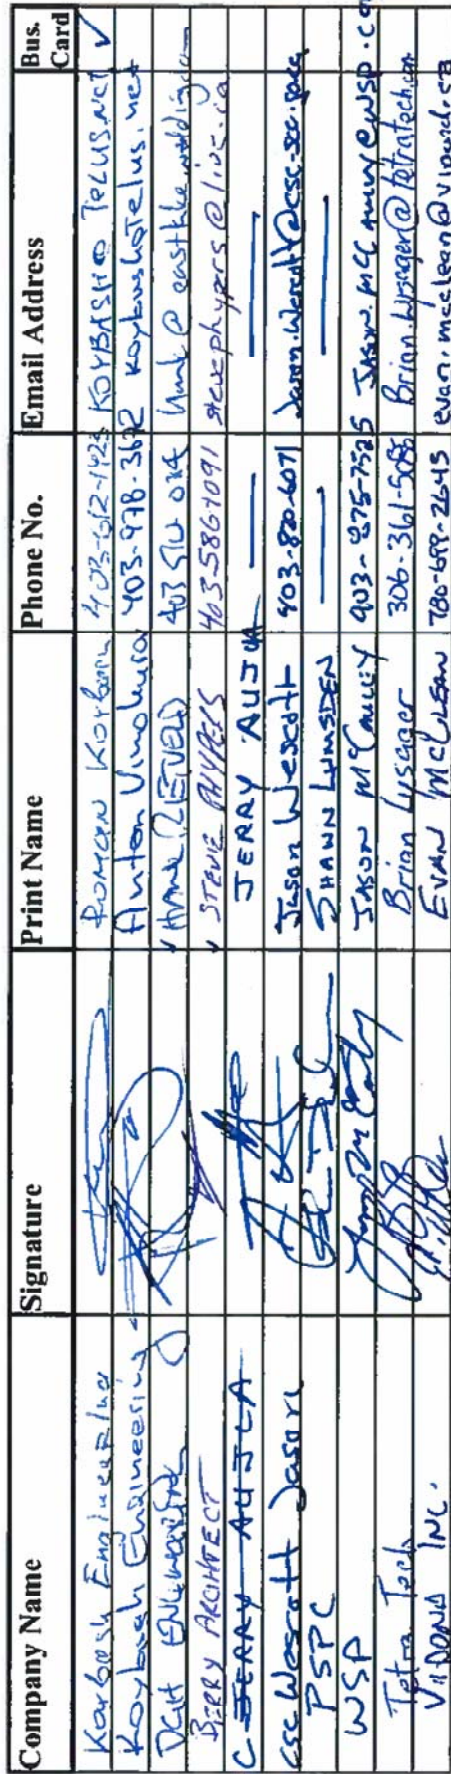 Company Name Signature Print Name Phone No. Email Address Bus. Card
Koybash Engineering Roman Koybash 403-612-1423 KOYBASH@TELUS.NET ✓
Koybash Engineering Anton 403-978-3612 koybash@telus.net
HANK 403
BERRY ARCHITECT STEVE PHYPERS 403 586 1091 stevephypers@live.ca
JERRY AUJLA JERRY AUJLA —
CSC Wescott Jason Jason Wescott 403-820-6071 Jason.Wescott@csc-scc.gc.ca
PSPC SHAWN LUMSDEN — —
WSP JASON McCauley 403-875-7525
Tetra Tech Brian Lysager 306-361-5086 Brian.Lysager@tetratech.com
VIPOND INC. EVAN McLEAN 780-699-2645 evan.mcclean@vipond.ca